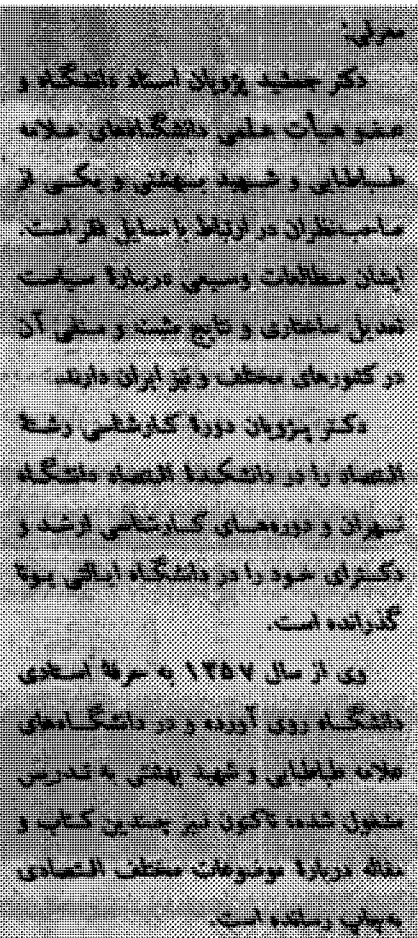 معرفی:
دکتر جمشید پژویان استاد دانشگاه و
عضو هیأت علمی دانشگاههای علامه
طباطبایی و شهید بهشتی و یکی از
صاحب‌نظران در ارتباط با مسایل فقر است.
ایشان مطالعات وسیعی دربارهٔ سیاست
تعدیل ساختاری و نتایج مثبت و منفی آن
در کشورهای مختلف و نیز ایران دارند.
دکتر پژویان دورهٔ کارشناسی رشتهٔ
اقتصاد را در دانشکدهٔ اقتصاد دانشگاه
تهران و دوره‌های کارشناسی ارشد و
دکترای خود را در دانشگاه ایالتی یوتا
گذرانده است.
وی از سال ۱۳۵۷ به حرفهٔ استادی
دانشگاه روی آورده و در دانشگاههای
علامه طباطبایی و شهید بهشتی به تدریس
مشغول شده، تاکنون نیز چندین کتاب و
مقاله دربارهٔ موضوعات مختلف اقتصادی
به‌چاپ رسانده است.